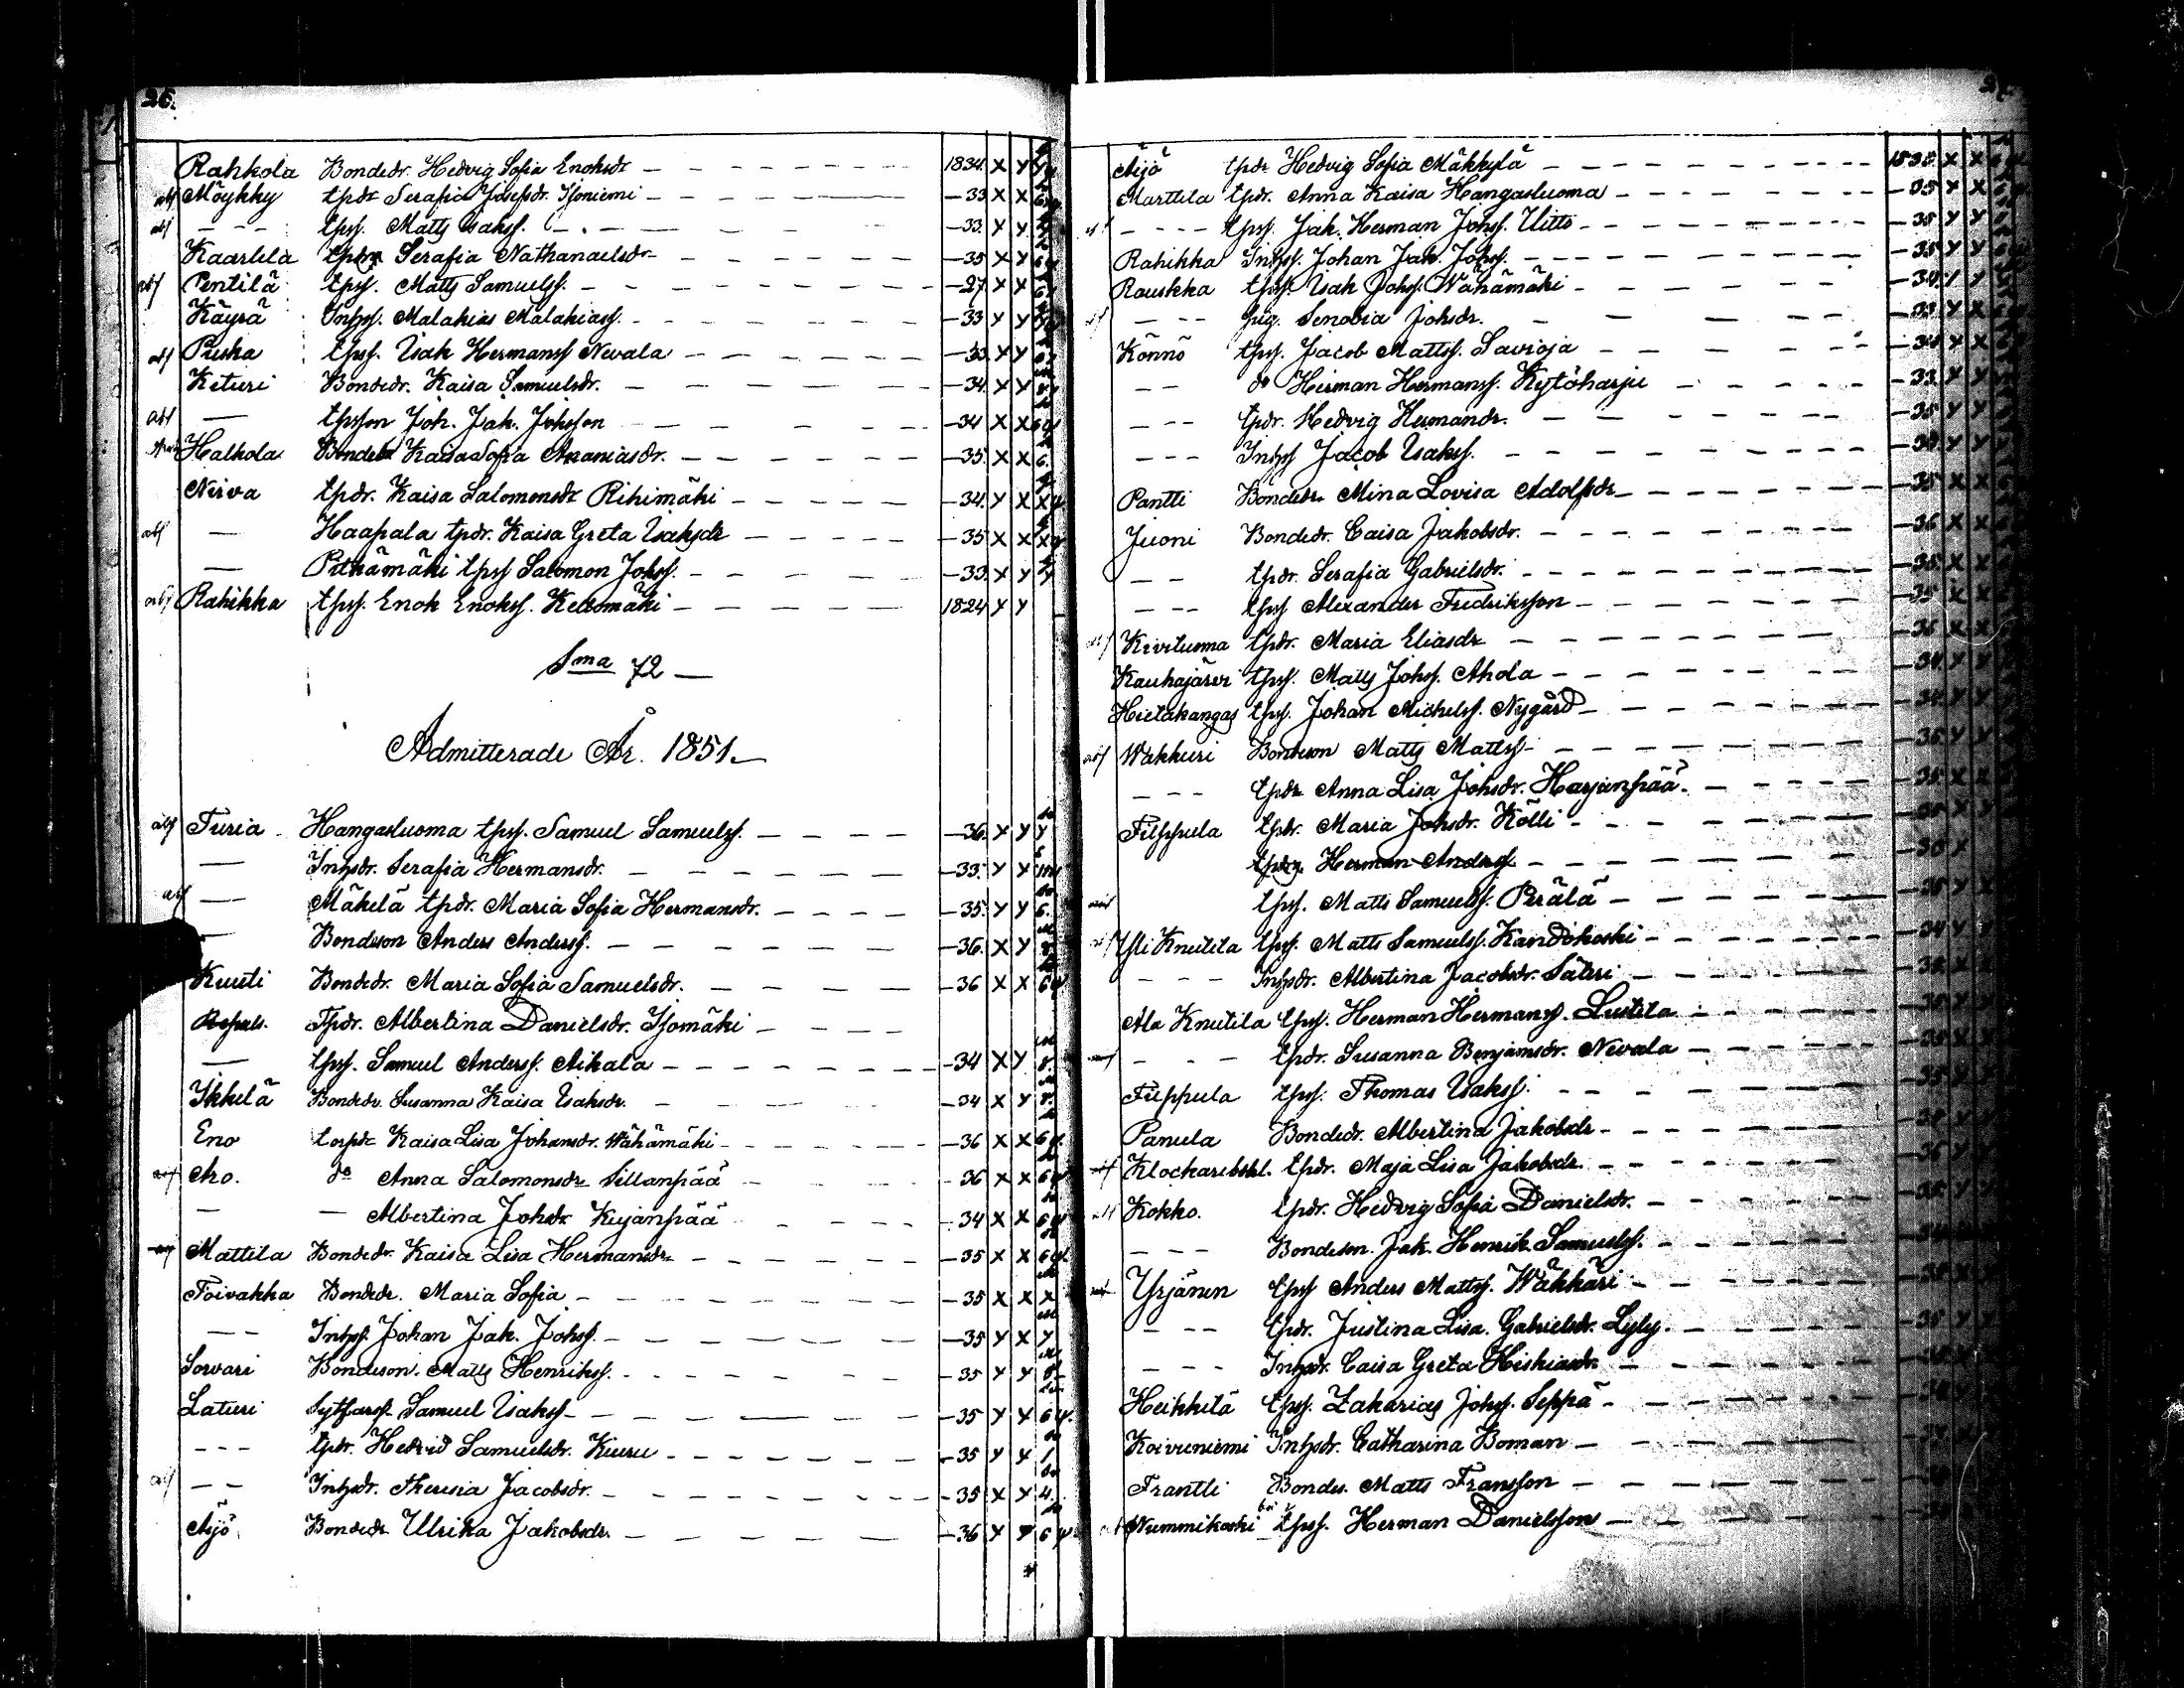 26.
Rahkola Bondedr. Hedvig Sofia Enoksdr — 1834. X Y
abs Möykky tpdr Serafia Josefsdr. Isoniemi — 33 X X 6
abs - - - tpss. Matts Isakss. — 33. Y Y
Kaarlela tpdr Serafia Nathanaelsdr — 35 X Y 6
abs Pentilä tpss. Matts Samuelss. — 27. X X 6
Käyrä Inhss. Malakias Malakiass. — 33 Y Y
abs Puska tpss. Isak Hermanss Nevala — 33. X Y
Keturi Bondedr. Kaisa Samuelsdr. — 34. X Y
abs — tpsson Joh. Jak. Johsson — 34 X X 6
Halkola Bondedr Kaisa Sofia Ananiasdr. — 35. X X 6.
Nirva tpdr. Kaisa Salomonsdr Rihimäki — 34. Y X X
abs — Haapala tpdr. Kaisa Greta Isaksdr — 35 X X X
— Pitkämäki tpss Salomon Johss. — 33. X Y Y
abs Rahikka tpss. Enok Enokss. Kedomäki — 1824 Y Y
Sma 72 —
Admitterade År. 1851 —
abs Turia Hangasluoma tpss. Samuel Samuelss. — 36. X Y Y
— Inhsdr. Serafia Hermansdr. — 33. Y Y
abs — Mäkelä tpdr. Maria Sofia Hermansdr. — 35. Y Y 6.
— Bondeson Anders Anderss. — 36. X Y 8.
Knuti Bondedr. Maria Sofia Samuelsdr. — 36 X X 6
Tpdr. Albertina Danielsdr. Isomäki —
— tpss. Samuel Anderss. Aikala — 34 X Y 8.
Ikkelä Bondedr. Susanna Kaisa Isaksdr. — 34 X Y 8.
Eno torpdr Kaisa Lisa Johansdr. Wähämäki — 36 X X 6
Aro. do Anna Salomonsdr Sillanpää — 36 X X 6
— — Albertina Johsdr Kujanpää — 34 X X 6
Mattila Bondedr. Kaisa Lisa Hermansdr — 35 X X 6
Toivakka Bondedr. Maria Sofia — 35 X X X
— — Inhss. Johan Jak. Johss. — 35 Y X Y
Sorvari Bondeson. Matts Henrikss. — 35 Y Y 8
Laturi Sytfarss. Samuel Isakss — 35 Y Y 6
- - - tpdr. Hedvid Samuelsdr. Kiuru — 35 Y Y 1
abs — — Inhsdr. Theresia Jacobsdr. — 35 X Y 4.
Äijö Bondedr Ulrika Jakobsdr. — 36 Y Y 6
Äijö tpdr Hedvig Sofia Mäkkylä — 1835. X X
Marttila tpdr. Anna Kaisa Hangasluoma — 35 Y X
- - - tpss. Jak. Herman Johss. Uitto — 35 Y Y
Rahikka Inhss. Johan Jak. Johss. — 35 Y Y
Rauskka tpss. Isak Johss. Wähämäki — 34. Y Y
- - - pig. Senobia Johsdr. — 33 Y X
Könnö tpss. Jacob Mattss. Savioja — 34 Y X
— — do Herman Hermanss. Kytöharju — 33. Y Y
- - - tpdr. Hedvig Hermandr. — 35 Y Y
- - - Inhss Jacob Isakss. — 34 Y Y
Pantti Bondedr Mina Lovisa Adolfsdr — 35 X X
Juoni Bondedr. Caisa Jakobsdr. — 36 X X
— — tpdr. Serafia Gabrielsdr. — 35. X X
- - - tpss Alexander Fredriksson — 35 X X
Kiviluoma tpdr. Maria Eliasdr — 36 X X
Kauhajärvi tpss. Matts Johss. Ahola — 34. Y Y
Hietakangas tpss. Johan Michelss. Nygård — 34. Y Y
abs Wakkuri Bondeson Matts Mattss — 35. Y Y
- - - tpdr Anna Lisa Johsdr. Harjanpää. — 35. X
Filppula tpdr. Maria Johsdr. Kölli — 35 X
Herman Anderss — 36 X
tpss. Matts Samuelss. Perälä — 35 Y X
Yli Knutila tpss. Matts Samuelss. Kandokoski — 34 Y Y
- - - Inhsdr. Albertina Jacobsdr. Säteri — 35. X
Ala Knutila tpss. Herman Hermanss. Lustila — 35 Y
- - - tpdr. Susanna Benjamsdr. Nevala — 35 X
Filppula tpss. Thomas Isakss. — 35 X
Panula Bondedr. Albertina Jakobsdr —
Klockarebohl. tpdr. Maja Lisa Jakobsdr. — 36 Y
Kokko. tpdr. Hedvig Sofia Danielsdr. —
- - - Bondeson. Jak. Henrik Samuelss. —
Yrjänen tpss Anders Mattss. Wäkkäri —
- - - tpdr. Justina Lisa. Gabrielsdr. Lyly. — 35
- - - Inhsdr. Caisa Greta Hiskiasdr —
Heikkilä tpss. Zakarias Johss. Seppä —
Koivuniemi Inhsdr. Catharina Boman —
Frantti Bondes. Matts Fransson —
Nummikoski by tpss. Herman Danielsson —